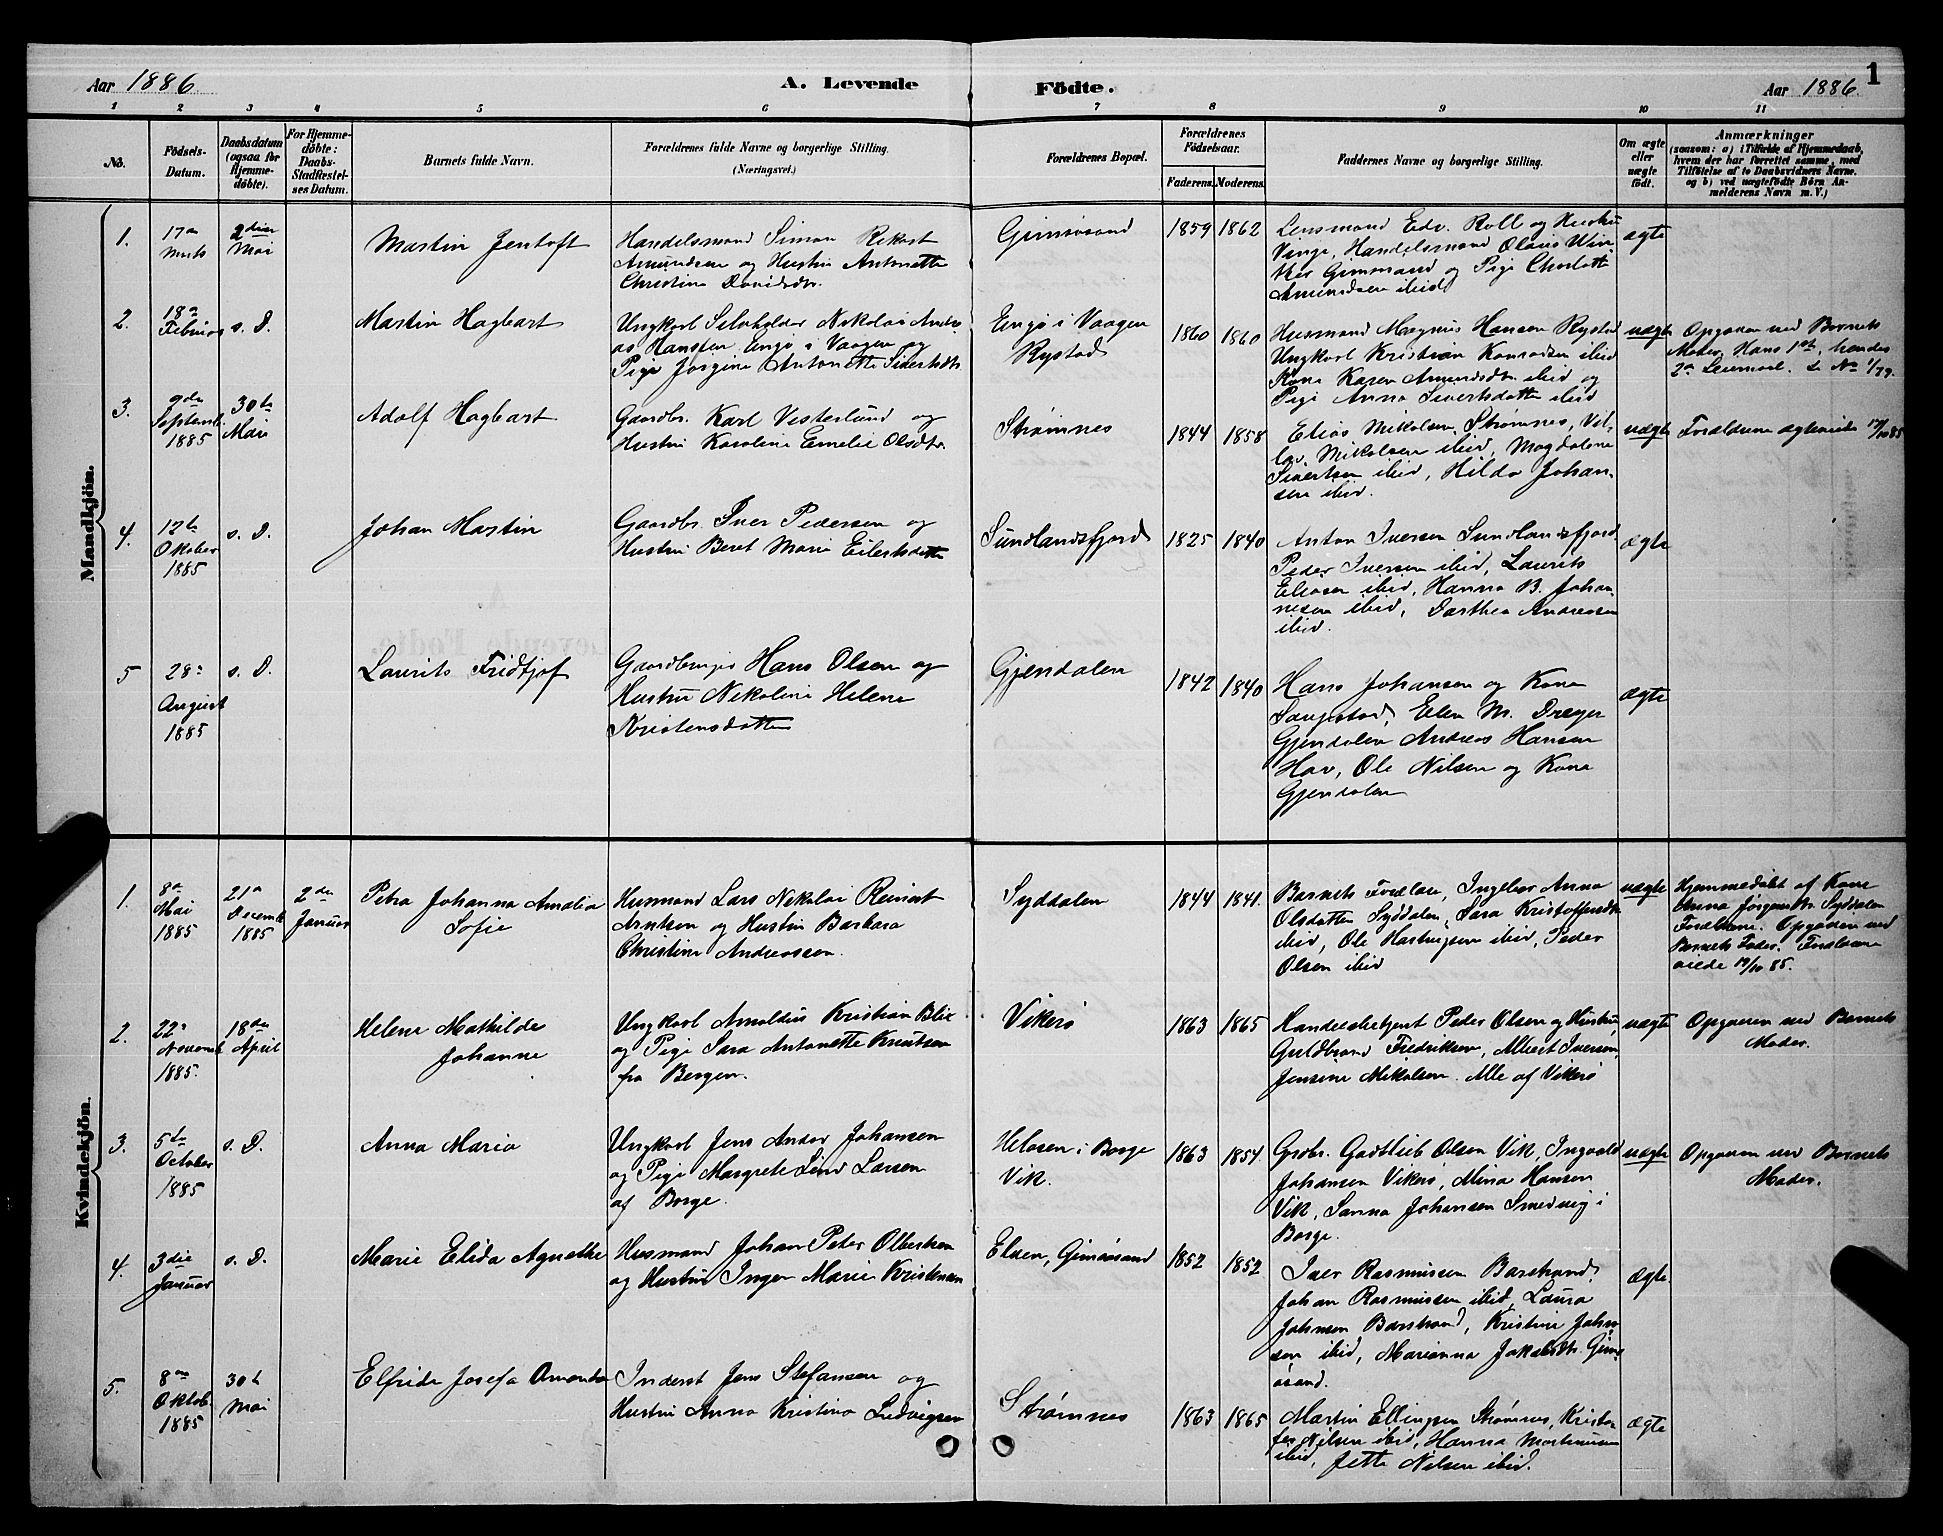 Aar 1886. A. Levende Födte. Aar 1886. 1
1 2 3 4 5 6 7 8 9 10 11
No.
Födsels-
Datum.
Daabsdatum
(ogsaa for
Hjemme-
döbte).
For Hjemme-
döbte:
Daabs-
Stadfæstel-
ses Datum.
Barnets fulde Navn.
Forældrenes fulde Navne og borgerlige Stilling.
(Næringsvei.)
Forældrenes Bopæl.
Forældrenes
Födselsaar.
Faderens. Moderens.
Faddernes Navne og borgerlige Stilling.
Om ægte
eller
uægte
födt.
Anmærkninger
(saasom: a) i Tilfælde af Hjemmedaab,
hvem der har forrettet samme, med
Tilföielse af to Daabsvidners Navne.
og b) ved uægtefödte Börn An-
melderens Navn m. V.)
Mandkjön.
1.
17de
Marts
2den
Mai
Martin Jentoft
Handelsmand Simon Rikart
Amundsen og Hustru Antonette
Christine Davidsdtr.
Gimsøsand
1859 1862
Lensmand Edv. Roll og Hustru
Vinge, Handelsmand Olaus Win-
Gimsøsand og Pige Charlotte
Amundsen ibid
ægte
2.
18de
Februar
s. D.
Martin Hagbart
Ungkarl Selvholder Nikolai Andre-
as Hansen Engø i Vaagen og
Pige Jorgine Antonette Sivertsdtr.
Engø i Vaagen
Rystad
1860 1860
Husmand Magnus Hansen Rystad
Ungkarl Kristian Konradsen ibid
Kone Karen Amundsdtr ibid og
Pige Anna Sivertsdatter ibid
uægte
Opgaven ved Barnets
Moder. Hans 1ste, hendes
2de Leiermaal. L. No 1/79.
3.
9de
Septemb.
1885
30te
Mai
Adolf Hagbart
Gaardbr. Karl Vesterlund og
Hustru Karoline Emelie Olsdtr.
Strømnes
1844 1858
Elias Nikolsen Strømnes, Vil-
Nikolsen ibid, Magdalena
Sivertsen ibid, Hilda Johan-
sen ibid.
uægte
Forældrene ægteviede 17/10 85
4.
12te
Oktober
1885
s. D.
Johan Martin
Gaardbr. Iver Pedersen og
Hustru Beret Marie Eilertsdatter
Sundlandsfjord
1825 1840
Anton Iversen Sundlandsfjord,
Peder Iversen ibid, Laurits
Eliasen ibid, Hanna B. Johan-
nesen ibid, Darthea Andreasen
ibid.
ægte
5
28de
August
1885
s. D.
Laurits Fridtjof
Gaardbruger Hans Olsen og
Hustru Nikoline Helene
Kristensdatter
Gjendalen
1842 1840
Hans Johansen og Kone
Saupstad, Elen M. Dreyer
Gjendalen Andreas Hansen
Hav, Ole Nilsen og Kone
Gjendalen
ægte
Kvindekjön.
1.
8de
Mai
1885
21de
Decemb.
1885
2den
Januar
Petra Johanna Amalia
Sofie
Husmand Lars Nikolai Reinert
Arntsen og Hustru Barbara
Christine Andreassen.
Syddalen
1844 1841.
Barnets Forældre, Ingebor Anna
Olsdatter Syddalen, Sara Kristoffersdtr
ibid, Ole Hartvigsen ibid, Peder
Olsen ibid
uægte
Hjemmedøbt af Kone
Anna Jörgensdtr. Syddalen
Forældrene. Opgaven ved
Barnets Fader. Forældrene
viede 17/10 85.
2.
22de
Novemb.
1885.
18de
April
Helene Mathilde
Johanne
Ungkarl Arnoldus Kristian Blix
og Pige Sara Antonette Knutsen
fra Bergen.
Vikerø
1863 1865
Handelsbetjent Peder Olsen og Hustru,
Guldbrand Fredriksen, Albert Iversen,
Jensine Nikolsen. Alle af Vikerø
uægte
Opgaven ved Barnets
Moder.
3.
5te
October
1885
s. D.
Anna Maria
Ungkarl Jens Andor Johansen
og Pige Margrete Lind Larsen
af Borge.
Helosen i Borge
Vik.
1863 1854.
Grdbr. Godtlieb Olsen Vik, Ingvald
Johansen Vikerø, Mina Hansen
Vik, Sanna Johansen Smedvig i
Borge.
uægte
Opgaven ved Barnets
Moder.
4.
3die
Januar
s. D.
Marie Elida Agnethe
Husmand Johan Peter Olbertsen
og Hustru Inger Marie Kristensen
Elven, Gimsøsand
1852 1852
Iver Rasmussen Barstrand,
Johan Rasmussen ibid, Laura
Johnsen Barstrand, Kristine Johan-
sen ibid, Marianna Jakobsdtr. Gims-
øsand.
Ægte.
5.
8de
Oktob.
1885
30te
Mai
Elfrida Josefa Amanda
Inderst Jens Stefansen og
Hustru Anna Kristina Ludvigsen
Strømnes
1863 1865
Martin Ellingsen Strømnes, Kristo-
fer Nilsen ibid, Hanna Martinusen
ibid, Jette Nilsen ibid.
ægte